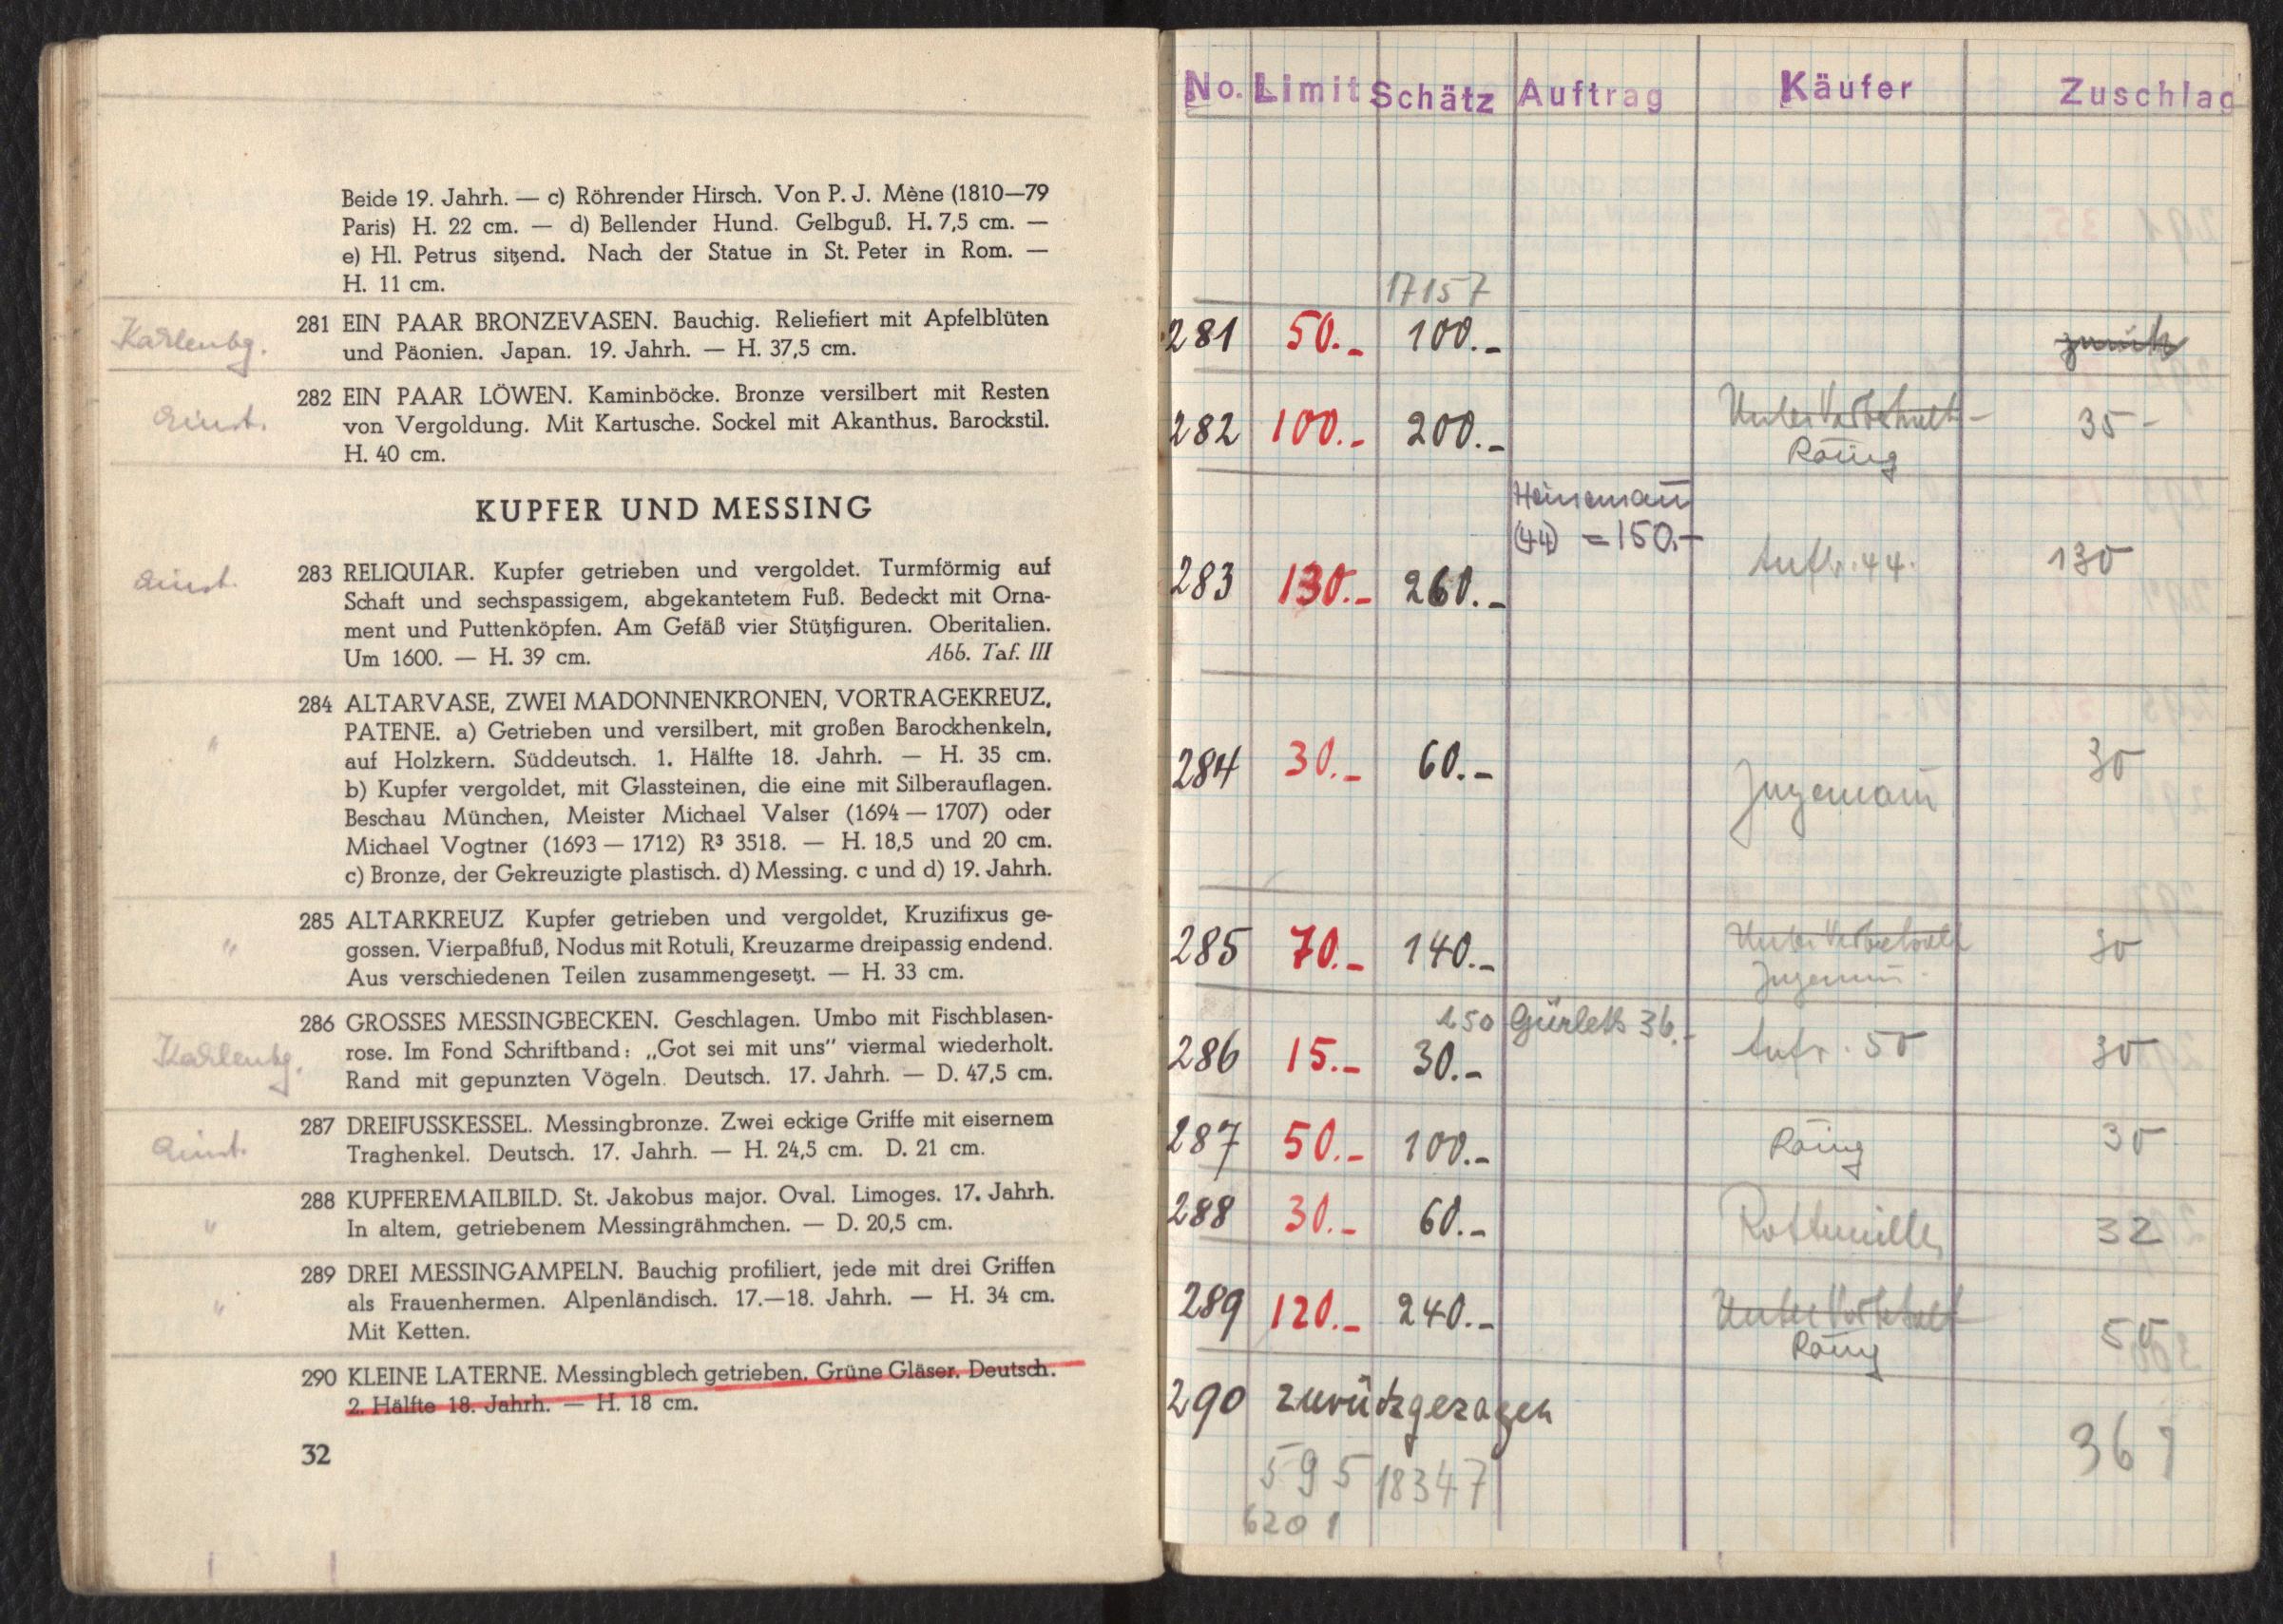 Beide 19. Jahrh. — c) Röhrender Hirsch. Von P. J. Mène (1810—79
Paris) H. 22 cm. — d) Bellender Hund. Gelbguß. H. 7,5 cm. —
e) Hl. Petrus sitzend. Nach der Statue in St. Peter in Rom. —
H. 11 cm.
281 EIN PAAR BRONZEVASEN. Bauchig. Reliefiert mit Apfelblüten
und Päonien. Japan. 19. Jahrh. — H. 37,5 cm.
282 EIN PAAR LÖWEN. Kaminböcke. Bronze versilbert mit Resten
von Vergoldung. Mit Kartusche. Sockel mit Akanthus. Barockstil.
H. 40 cm.
KUPFER UND MESSING
283 RELIQUIAR. Kupfer getrieben und vergoldet. Turmförmig auf
Schaft und sechspassigem, abgekantetem Fuß. Bedeckt mit Orna-
ment und Puttenköpfen. Am Gefäß vier Stützfiguren. Oberitalien.
Um 1600. — H. 39 cm. Abb. Taf. III
" 284 ALTARVASE, ZWEI MADONNENKRONEN, VORTRAGEKREUZ,
PATENE. a) Getrieben und versilbert, mit großen Barockhenkeln,
auf Holzkern. Süddeutsch. 1. Hälfte 18. Jahrh. — H. 35 cm.
b) Kupfer vergoldet, mit Glassteinen, die eine mit Silberauflagen.
Beschau München, Meister Michael Valser (1694 — 1707) oder
Michael Vogtner (1693 — 1712) R³ 3518. — H. 18,5 und 20 cm.
c) Bronze, der Gekreuzigte plastisch. d) Messing. c und d) 19. Jahrh.
" 285 ALTARKREUZ Kupfer getrieben und vergoldet, Kruzifixus ge-
gossen. Vierpaßfuß, Nodus mit Rotuli, Kreuzarme dreipassig endend.
Aus verschiedenen Teilen zusammengesetzt. — H. 33 cm.
286 GROSSES MESSINGBECKEN. Geschlagen. Umbo mit Fischblasen-
rose. Im Fond Schriftband: „Got sei mit uns" viermal wiederholt.
Rand mit gepunzten Vögeln. Deutsch. 17. Jahrh. — D. 47,5 cm.
287 DREIFUSSKESSEL. Messingbronze. Zwei eckige Griffe mit eisernem
Traghenkel. Deutsch. 17. Jahrh. — H. 24,5 cm. D. 21 cm.
" 288 KUPFEREMAILBILD. St. Jakobus major. Oval. Limoges. 17. Jahrh.
In altem, getriebenem Messingrähmchen. — D. 20,5 cm.
" 289 DREI MESSINGAMPELN. Bauchig profiliert, jede mit drei Griffen
als Frauenhermen. Alpenländisch. 17.—18. Jahrh. — H. 34 cm.
Mit Ketten.
290 KLEINE LATERNE. Messingblech getrieben. Grüne Gläser. Deutsch.
2. Hälfte 18. Jahrh. — H. 18 cm.
32
No. Limit Schätz Auftrag Käufer Zuschlag
17157
281 50.- 100.- zurück
282 100.- 200.- Unter Vorbehalt 35-
Heinemann
(44) = 150.-
283 130.- 260.- Auftr. 44. 130
284 30.- 60.- 30
285 70.- 140.- Unter Vorbehalt 30
Gurlett 36.-
286 15.- 30.- Auftr. 50 30
287 50.- 100.- 30
288 30.- 60.- 32
289 120.- 240.- Unter Vorbehalt 50
290 zurückgezogen
367
595 18347
6201